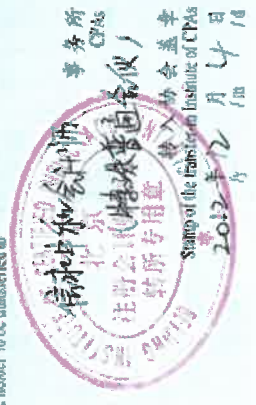 holder to be transferred to
信永中和会计师 事务所
CPAs
(特殊普通合伙)
北京
转所专用章
转入协会盖章
Stamp of the transfer-in Institute of CPAs
2012年12月4日
/y /m /d